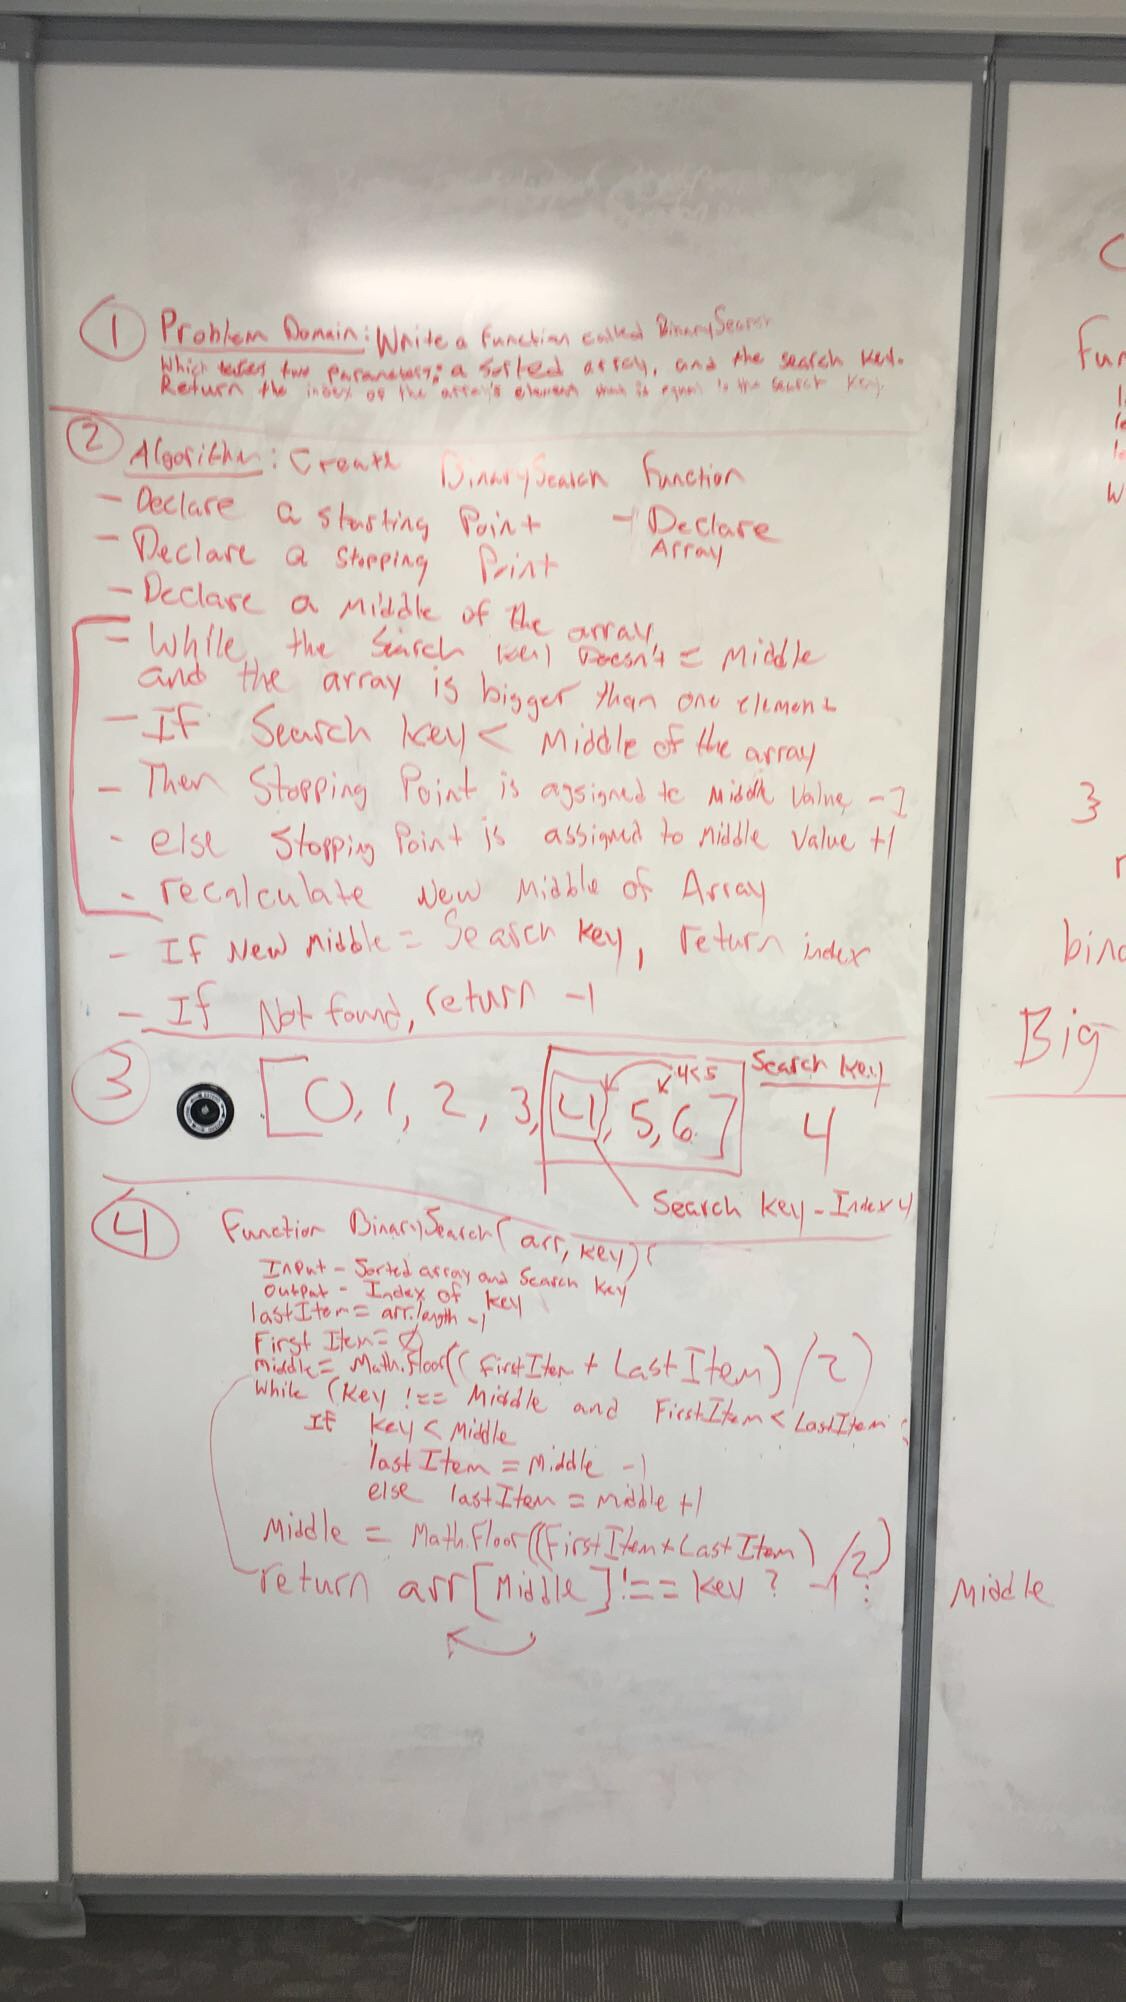 ① Problem Domain: Write a function called BinarySearch
Which takes two parameters; a sorted array, and the search key.
Return the index of the array's element that is equal to the search key.
② Algorithm: Create BinarySearch Function
- Declare a starting Point - Declare Array
- Declare a stopping Point
- Declare a Middle of the array
- While, the Search key Doesn't = Middle
and the array is bigger than one element
- If Search key < Middle of the array
- Then Stopping Point is assigned to Middle Value -1
- else Stopping Point is assigned to Middle Value +1
- recalculate New Middle of Array
- If New Middle = Search key, return index
- If Not found, return -1
③ [0, 1, 2, 3, 4, 5, 6] 4<5 Search key
4
Search key - Index 4
④ Function BinarySearch(arr, key){
Input - Sorted array and Search key
Output - Index of key
lastItem = arr.length -1
First Item = 0
Middle = Math.floor((FirstItem + LastItem) /2)
While (key !== Middle and FirstItem < LastItem
If key < Middle
lastItem = Middle -1
else lastItem = middle +1
Middle = Math.floor((FirstItem + LastItem) /2)
return arr[Middle] !== key ? -1 : Middle
Fun
W
3
bina
Big